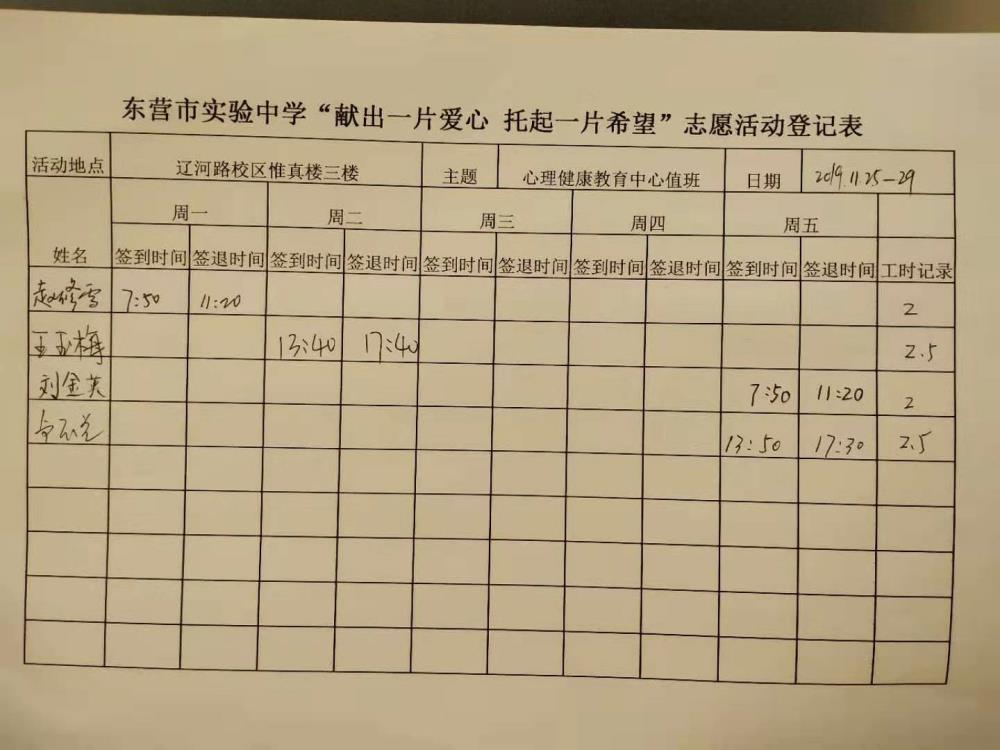 东营市实验中学“献出一片爱心 托起一片希望”志愿活动登记表
活动地点 辽河路校区惟真楼三楼 主题 心理健康教育中心值班 日期 2019.11.25-29
周一 周二 周三 周四 周五
姓名 签到时间 签退时间 签到时间 签退时间 签到时间 签退时间 签到时间 签退时间 签到时间 签退时间 工时记录
赵修雪 7:50 11:20 2
王玉梅 13:40 17:40 2.5
刘金英 7:50 11:20 2
13:50 17:30 2.5